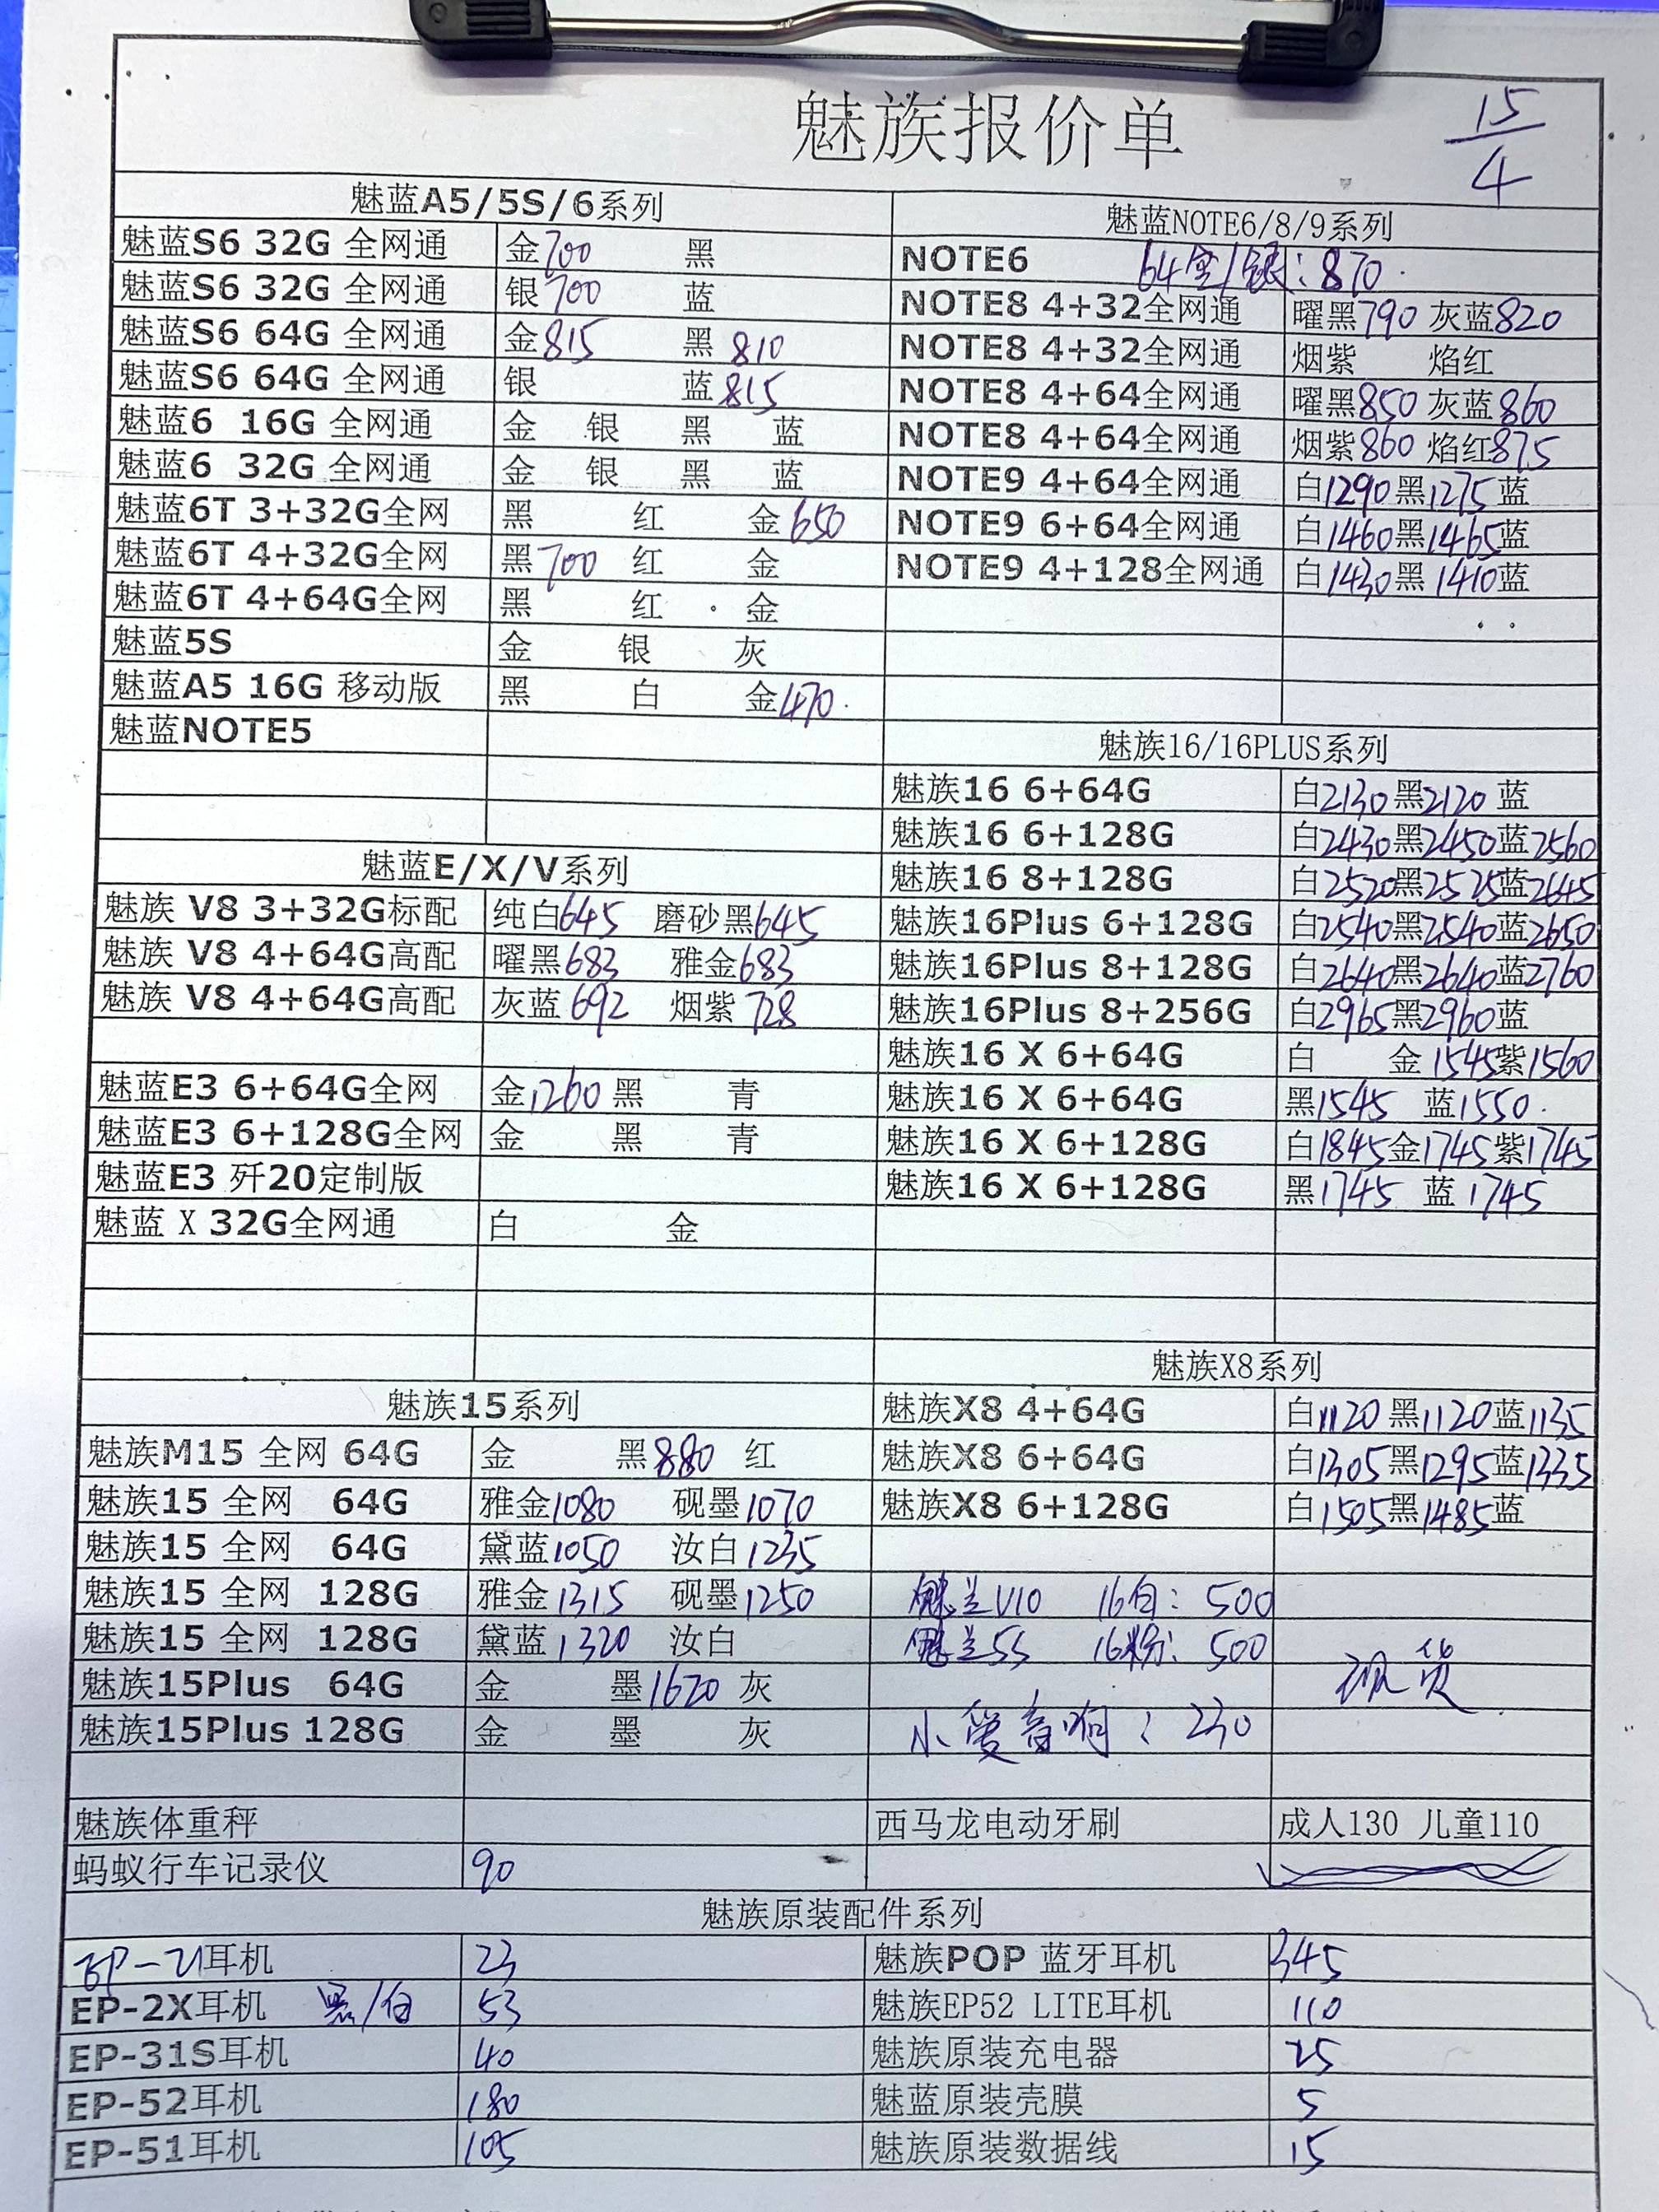 魅族报价单
15/4
魅蓝A5/5S/6系列
魅蓝S6 32G 全网通 金700 黑
魅蓝S6 32G 全网通 银700 蓝
魅蓝S6 64G 全网通 金815 黑810
魅蓝S6 64G 全网通 银 蓝815
魅蓝6 16G 全网通 金 银 黑 蓝
魅蓝6 32G 全网通 金 银 黑 蓝
魅蓝6T 3+32G全网 黑 红 金650
魅蓝6T 4+32G全网 黑700 红 金
魅蓝6T 4+64G全网 黑 红 金
魅蓝5S 金 银 灰
魅蓝A5 16G 移动版 黑 白 金470.
魅蓝NOTE5
魅蓝E/X/V系列
魅族 V8 3+32G标配 纯白645 磨砂黑645
魅族 V8 4+64G高配 曜黑683 雅金683
魅族 V8 4+64G高配 灰蓝692 烟紫728
魅蓝E3 6+64G全网 金1260 黑 青
魅蓝E3 6+128G全网 金 黑 青
魅蓝E3 歼20定制版
魅蓝 X 32G全网通 白 金
魅族15系列
魅族M15 全网 64G 金 黑880 红
魅族15 全网 64G 雅金1080 砚墨1070
魅族15 全网 64G 黛蓝1050 汝白1235
魅族15 全网 128G 雅金1315 砚墨1250
魅族15 全网 128G 黛蓝1320 汝白
魅族15Plus 64G 金 墨1620 灰
魅族15Plus 128G 金 墨 灰
魅族体重秤
蚂蚁行车记录仪 90
魅蓝NOTE6/8/9系列
NOTE6 64金/银:870.
NOTE8 4+32全网通 曜黑790 灰蓝820
NOTE8 4+32全网通 烟紫 焰红
NOTE8 4+64全网通 曜黑850 灰蓝860
NOTE8 4+64全网通 烟紫860 焰红875
NOTE9 4+64全网通 白1290黑1275蓝
NOTE9 6+64全网通 白1460黑1465蓝
NOTE9 4+128全网通 白1430黑1410蓝
魅族16/16PLUS系列
魅族16 6+64G 白2130黑2120 蓝
魅族16 6+128G 白2430黑2450蓝2560
魅族16 8+128G 白2520黑2525蓝2645
魅族16Plus 6+128G 白2540黑2540蓝2650
魅族16Plus 8+128G 白2640黑2640蓝2760
魅族16Plus 8+256G 白2965黑2960蓝
魅族16 X 6+64G 白 金1545紫1560
魅族16 X 6+64G 黑1545 蓝1550.
魅族16 X 6+128G 白1845金1745紫1745
魅族16 X 6+128G 黑1745 蓝1745
魅族X8系列
魅族X8 4+64G 白1120黑1120蓝1135
魅族X8 6+64G 白1305黑1295蓝1335
魅族X8 6+128G 白1505黑1485蓝
魅兰V10 16白: 500
魅兰5S 16粉: 500
现货
小爱音响: 230
西马龙电动牙刷 成人130 儿童110
魅族原装配件系列
EP-21耳机 23
EP-2X耳机 黑/白 53
EP-31S耳机 40
EP-52耳机 180
EP-51耳机 105
魅族POP 蓝牙耳机 345
魅族EP52 LITE耳机 110
魅族原装充电器 25
魅蓝原装壳膜 5
魅族原装数据线 15